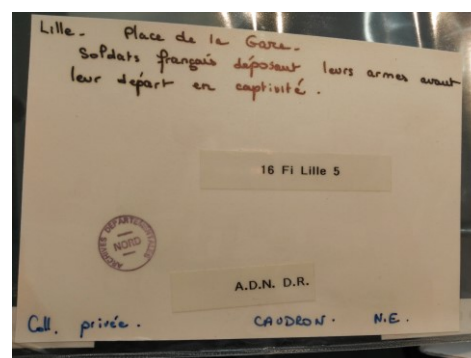 Lille. Place de la Gare.
Soldats français déposant leurs armes avant
leur départ en captivité.
16 Fi Lille 5
ARCHIVES DÉPARTEMENTALES
NORD
A.D.N. D.R.
Coll. privée. CAUDRON. N.E.